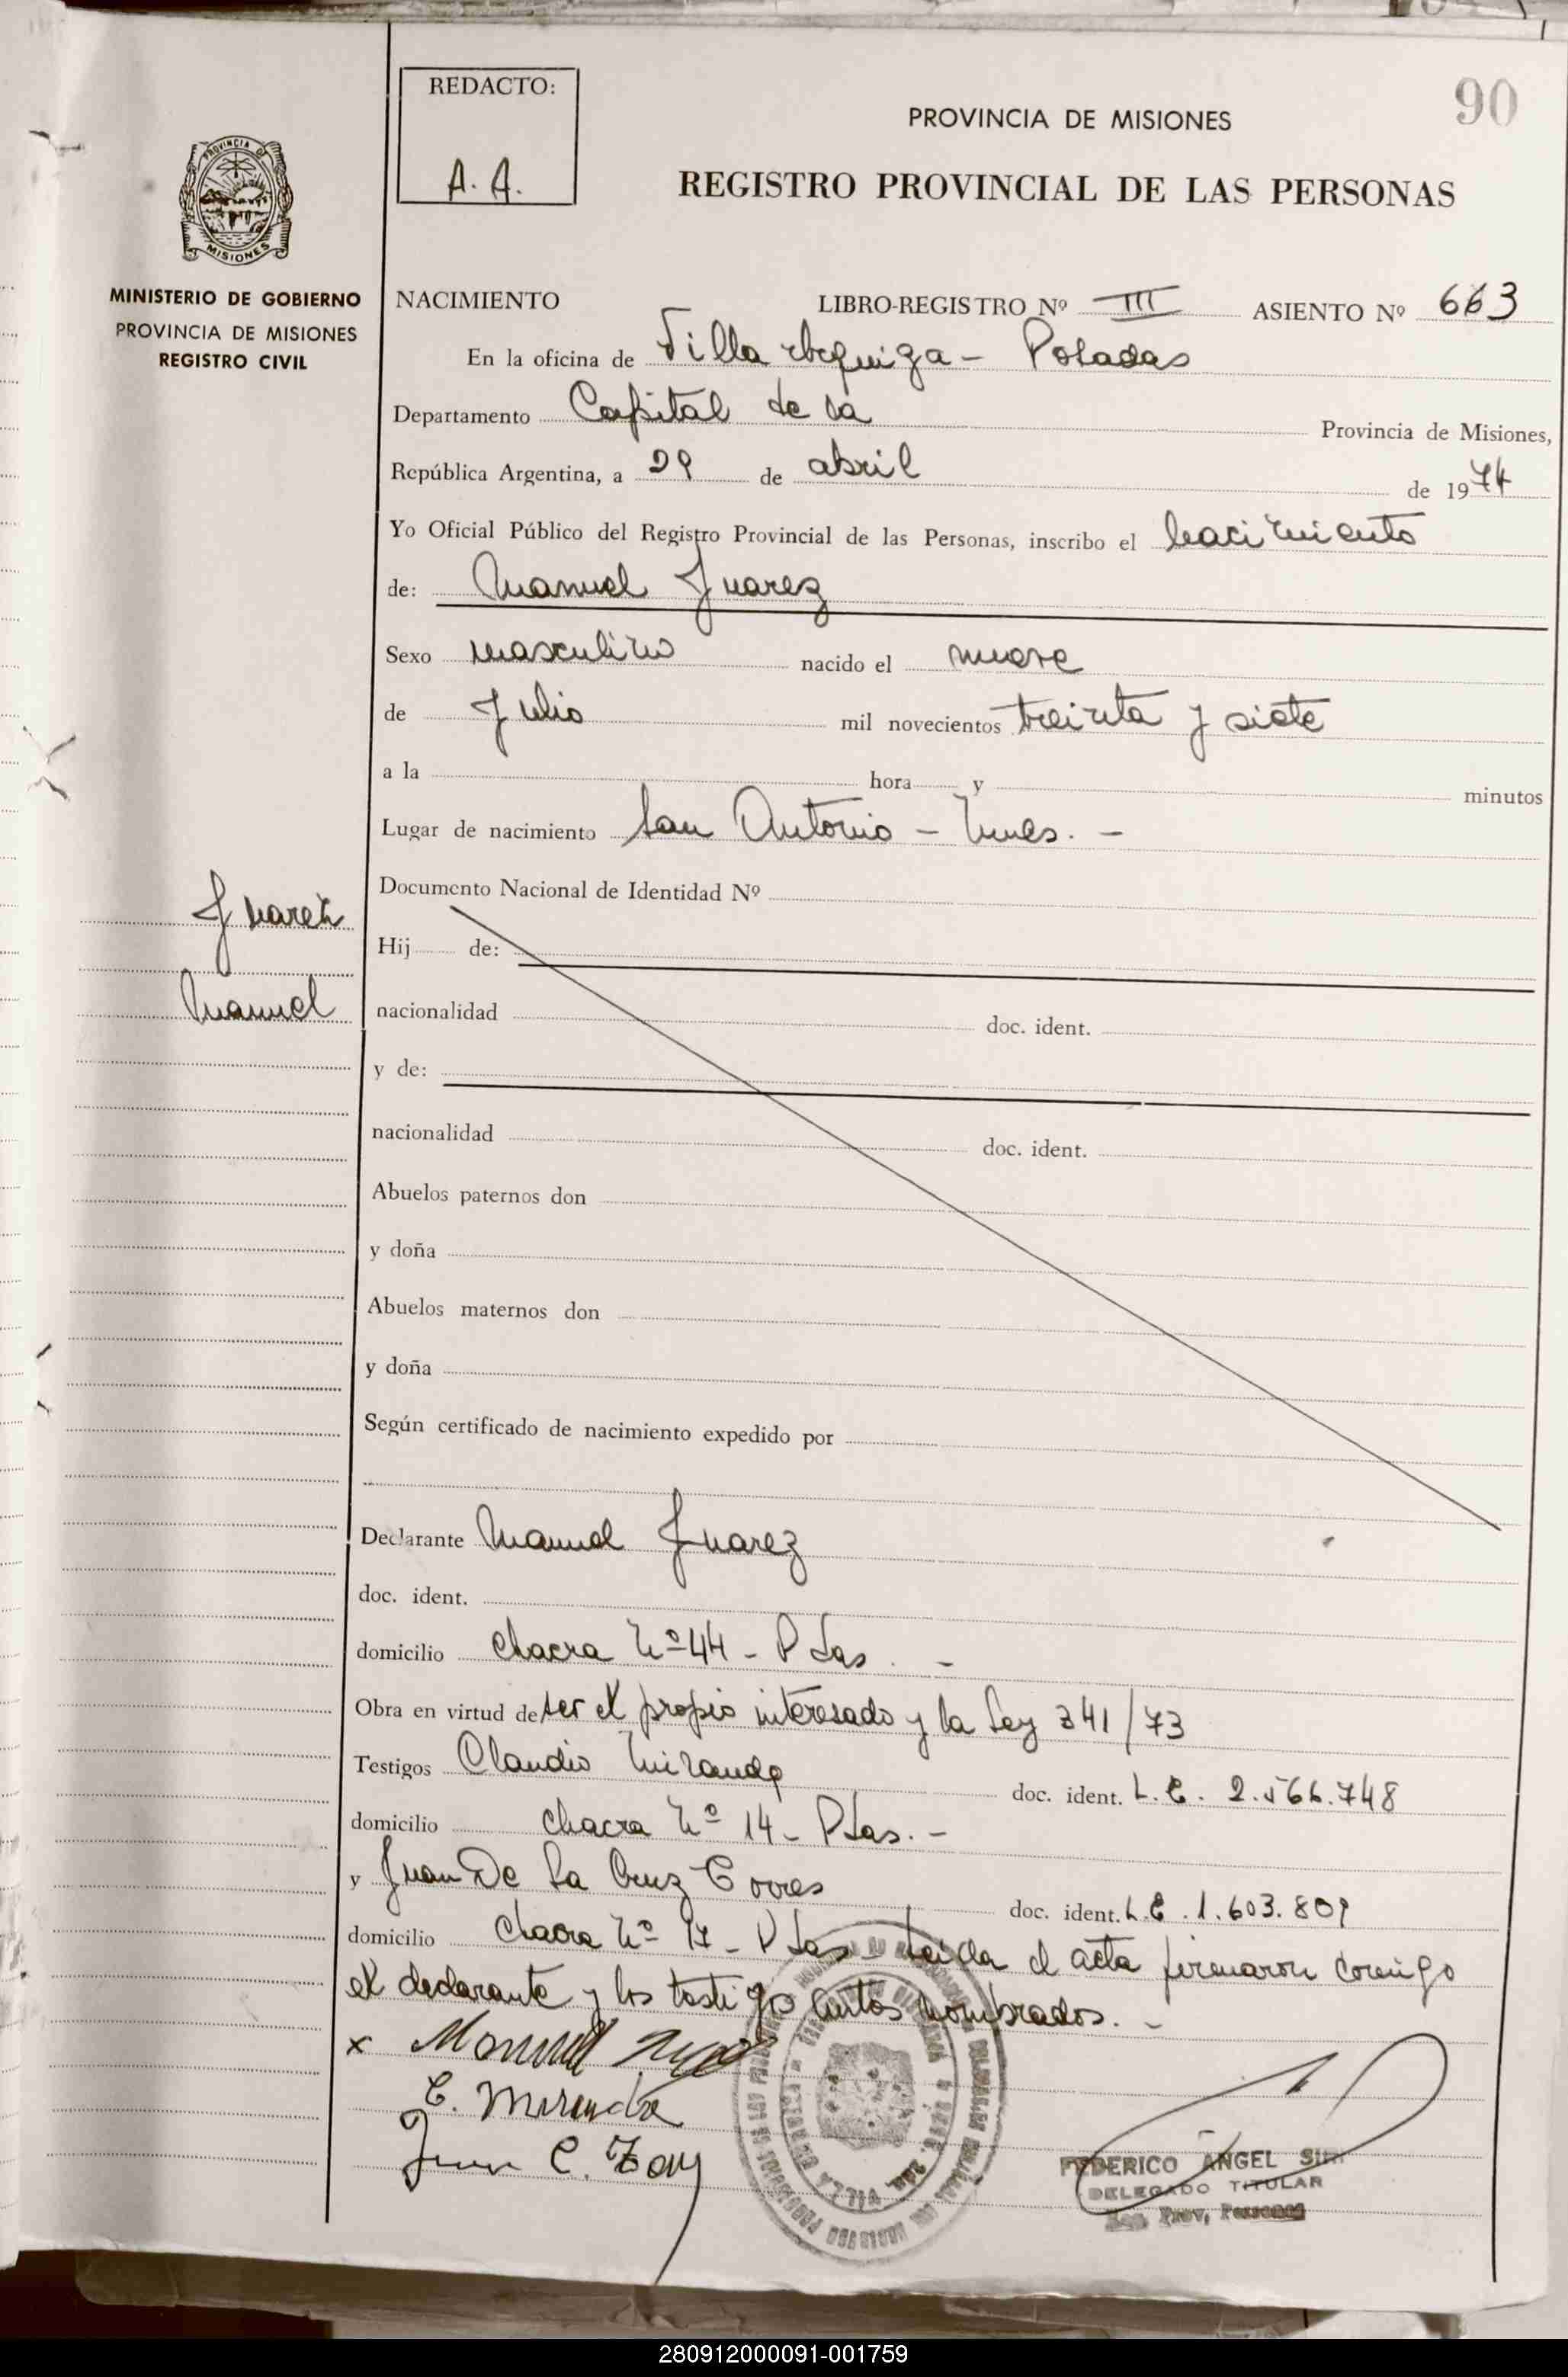 90
REDACTO:
A. A.
PROVINCIA DE MISIONES
REGISTRO PROVINCIAL DE LAS PERSONAS
PROVINCIA DE
MISIONES
MINISTERIO DE GOBIERNO
PROVINCIA DE MISIONES
REGISTRO CIVIL
NACIMIENTO LIBRO-REGISTRO Nº III ASIENTO Nº 663
En la oficina de Villa Urquiza - Posadas
Departamento Capital de la Provincia de Misiones,
República Argentina, a 29 de abril de 1974
Yo Oficial Público del Registro Provincial de las Personas, inscribo el nacimiento
de: Manuel Juarez
Sexo masculino nacido el nueve
de Julio mil novecientos treinta y siete
a la hora y minutos
Lugar de nacimiento San Antonio - Mnes. -
Documento Nacional de Identidad Nº
Juarez
Hij de:
Manuel
nacionalidad doc. ident.
y de:
nacionalidad doc. ident.
Abuelos paternos don
y doña
Abuelos maternos don
y doña
Según certificado de nacimiento expedido por
Declarante Manuel Juarez
doc. ident.
domicilio chacra Nº 44 - Pdas. -
Obra en virtud de ser el propio interesado y la Ley 341/73
Testigos Claudio Miranda doc. ident. L.E. 2.566.748
domicilio chacra Nº 14 - Pdas. -
y Juan De La Cruz Torres doc. ident. L.E. 1.603.809
domicilio chacra Nº 17 - Pdas - Leida el acta firmaron conmigo
el declarante y los testigo antes nombrados. -
x Manuel
C. Miranda
Juan C.
FEDERICO ANGEL
DELEGADO TITULAR
Reg. Prov. Personas
280912000091-001759